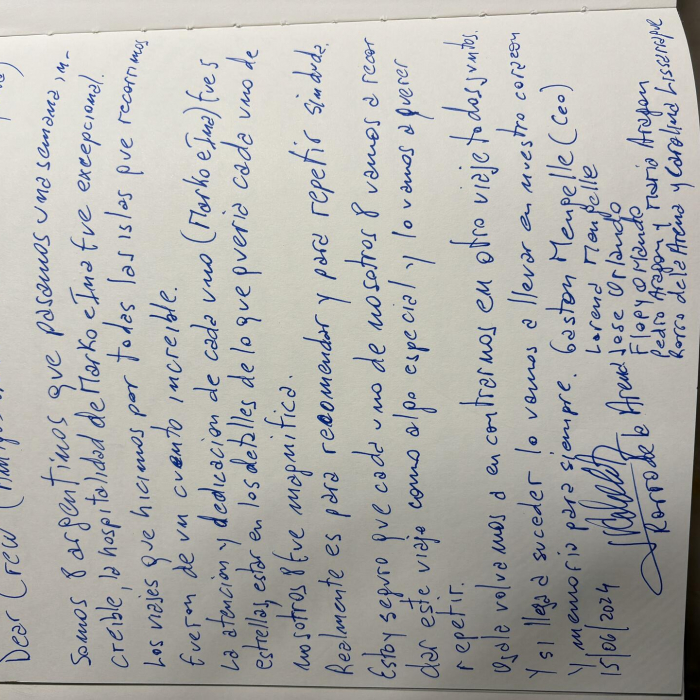 Dear Crew
Somos 8 argentinos que pasamos una semana, in-
creible, la hospitalidad de Marko e Ina fue excepcional.
Los viajes que hicimos por todas las islas que recorrimos
fueron de un cuento increible.
La atencion y dedicacion de cada uno (Marko e Ina) fue 5
estrellas, estar en los detalles de lo que queria cada uno de
nosotros 8 fue magnifica.
Realmente es para recomendar y para repetir sin duda.
Estoy seguro que cada uno de nosotros 8 vamos a recor
dar este viaje como algo especial y lo vamos a querer
repetir.
Ojala volvamos a encontrarnos en otro viaje todos juntos.
Y si llega a suceder lo vamos a llevar en nuestro corazon
Y memorio para siempre. Gaston Mengelle (Ceo)
Lorena Mengelle
Jose Orlando
Flopy Orlando
Pedro Aragon y Maria Aragon
Rorro de la Arena y Carolina Lissarrague
15/06/2024
Rorro de la Arena